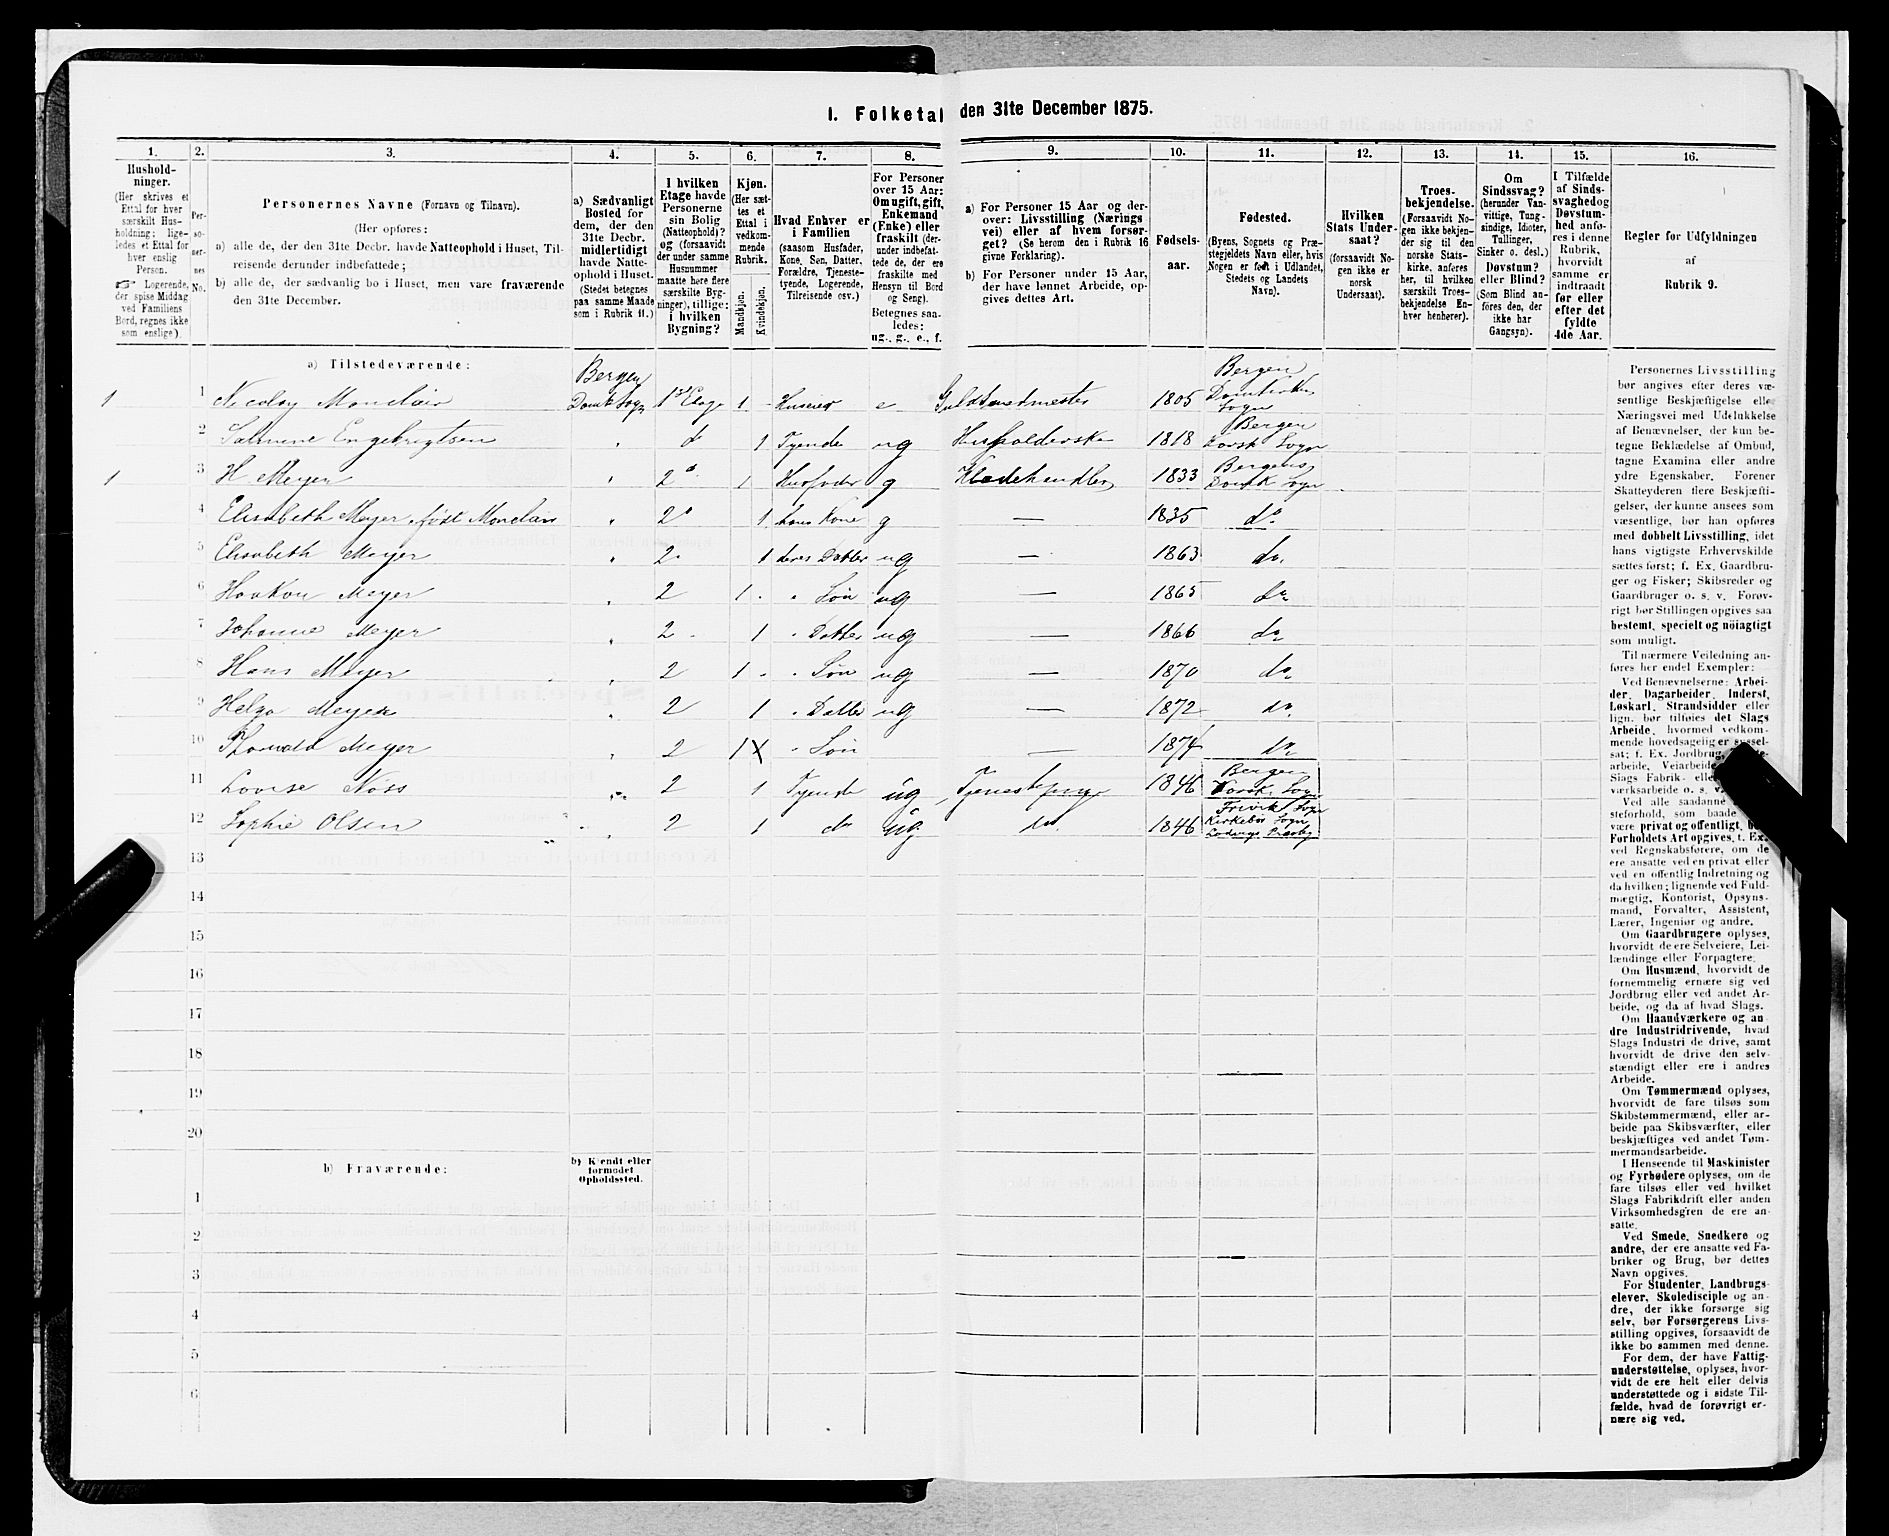 1. Folketal den 31te December 1875.
1. 2. 3. 4. 5. 6. 7. 8. 9. 10. 11. 12. 13. 14. 15. 16.
Hushold-
ninger.
(Her skrives et
Ettal for hver
særskilt Hus-
holdning; lige-
ledes et Ettal for
hver enslig
Person.
☞ Logerende,
der spise Middag
ved Familiens
Bord, regnes ikke
som enslige).
Per-
soner-
nes
No.
Personernes Navne (Fornavn og Tilnavn).
(Her opføres:
a) alle de, der den 31te Decbr. havde Natteophold i Huset, Til-
reisende derunder indbefattede;
b) alle de, der sædvanlig bo i Huset, men vare fraværende
den 31te December.
a) Sædvanligt
Bosted for
dem, der den
31te Decbr.
midlertidigt
havde Natte-
ophold i Huset.
(Stedet betegnes
paa samme Maade
som i Rubrik 11.)
I hvilken
Etage havde
Personerne
sin Bolig
(Natteophold)?
og (forsaavidt
der under samme
Husnummer
maatte høre flere
særskilte Byg-
ninger), tillige:
i hvilken
Bygning?
Kjøn.
(Her sæt-
tes et
Ettal i
vedkom-
mende
Rubrik.
Mandkjøn.
Kvindekjøn.
Hvad Enhver er
i Familien
(saasom Husfader,
Kone, Søn, Datter,
Forældre, Tjeneste-
tyende, Logerende,
Tilreisende osv.)
For Personer
over 15 Aar:
Om ugift, gift,
Enkemand
(Enke) eller
fraskilt (der-
under indbefat-
tede de, der ere
fraskilte med
Hensyn til Bord
og Seng).
Betegnes saa-
ledes:
ug., g., e., f.
a) For Personer 15 Aar og der-
over: Livsstilling (Nærings
vei) eller af hvem forsør-
get? (Se herom den i Rubrik 16
givne Forklaring).
b) For Personer under 15 Aar,
der have lønnet Arbeide, op-
gives dettes Art.
Fødsels-
aar.
Fødested.
(Byens, Sognets og Præ-
stegjeldets Navn eller, hvis
Nogen er født i Udlandet,
Stedets og Landets
Navn).
Hvilken
Stats Under-
saat?
(forsaavidt No-
gen ikke er
norsk
Undersaat).
Troes-
bekjendelse.
(Forsaavidt No-
gen ikke bekjen-
der sig til den
norske Stats-
kirke, anføres
her, til hvilken
særskilt Troes-
bekjendelse En-
hver henhører).
Om
Sindssvag?
(herunder Van-
vittige, Tung-
sindige, Idioter,
Tullinger,
Sinker o. desl.)
Døvstum?
eller Blind?
(Som Blind an-
føres den, der
ikke har
Gangsyn).
I Tilfælde
af Sinds-
svaghed og
Døvstum-
hed anfø-
res i denne
Rubrik,
hvorvidt
samme er
indtraadt
før eller
efter det
fyldte
4de Aar.
Regler for Udfyldningen
af
Rubrik 9.
a) Tilstedeværende:
1 1 Nicolay Monclair Bergen Domk Sogn 1ste Etage 1 Huseier e Guldsmedmester 1805 Bergen Domkirke Sogn
2 Engebrigtsen " do 1 Tyende ug Husholderske 1818 Bergen Korsk Sogn
1 3 H Meyer " 2 1 Husfader g Klædehandler 1833 Bergens Domk Sogn
4 Elisabeth Meyer født Monclair " 2 1 hans Kone g — 1835 do
5 Elisabeth Meyer " 2 1 deres Datter ug — 1863 do
6 Haakon Meyer " 2 1 " Søn ug — 1865 do
7 Johanne Meyer " 2 1 " Datter ug — 1866 do
8 Hans Meyer " 2 1 " Søn ug — 1870 do
9 Helga Meyer " 2 1 " Datter ug — 1872 do
10 Thorvald Meyer " 2 1 " Søn — 1874 do
11 Lovise Næss " 2 1 Tyende ug Tjenestepige 1846 Bergen Korsk. Sogn
12 Sophie Olsen " 2 1 do ug do 1846 Sogn Kirkebø Sogn
13
14
15
16
17
18
19
20
b) Fraværende:
b) Kjendt eller
formodet
Opholdssted.
1
2
3
4
5
6
Personernes Livsstilling
bør angives efter deres væ-
sentlige Beskjæftigelse eller
Næringsvei med Udelukkelse
af Benævnelser, der kun be-
tegne Beklædelse af Ombud,
tagne Examina eller andre
ydre Egenskaber. Forener
Skatteyderen flere Beskjæfti-
gelser, der kunne ansees som
væsentlige, bør han opføres
med dobbelt Livsstilling, idet
hans vigtigste Erhvervskilde
sættes først; f. Ex. Gaardbru-
ger og Fisker; Skibsreder og
Gaardbruger o. s. v. Forøv-
rigt bør Stillingen opgives saa
bestemt, specielt og nöiagtigt
som muligt.
Til nærmere Veiledning an-
føres her endel Exempler:
Ved Benævnelserne: Arbei-
der, Dagarbeider, Inderst,
Løskarl, Strandsidder eller
lign. bør tilføies det Slags
Arbeide, hvormed vedkom-
mende hovedsagelig er
sat; f. Ex. Jordbrug,
arbeide, Veiarbeide
Slags Fabrik- eller
værksarbeide o. s. v.
Ved alle saadanne
steforhold, som baade
være privat og offentligt,
Forholdets Art opgives, t. Ex.
ved Regnskabsførere, om de
ere ansatte ved en privat eller
ved en offentlig Indretning og
da hvilken; lignende ved Fuld-
mægtig, Kontorist, Opsyns-
mand, Forvalter, Assistent,
Lærer, Ingeniør og andre.
Om Gaardbrugere oplyses,
hvorvidt de ere Selveiere, Lei-
lændinge eller Forpagtere.
Om Husmænd, hvorvidt de
fornemmelig ernære sig ved
Jordbrug eller ved andet Ar-
beide, og da af hvad Slags.
Om Haandværkere og an-
dre Industridrivende, hvad
Slags Industri de drive, samt
hvorvidt de drive den selv-
stændigt eller ere i andres
Arbeide.
Om Tømmermænd oplyses,
hvorvidt de fare tilsøs som
Skibstømmermænd, eller ar-
beide paa Skibsværfter, eller
beskjæftiges ved andet Tøm-
mermandsarbeide.
I Henseende til Maskinister
og Fyrbødere oplyses, om de
fare tilsøs eller ved hvilket
Slags Fabrikdrift eller anden
Virksomhedsgren de ere an-
satte.
Ved Smede, Snedkere og
andre, der ere ansatte ved Fa-
briker og Brug, bør dettes
Navn opgives.
For Studenter, Landbrugs-
elever, Skoledisciple og an-
dre, der ikke forsørge sig
selv, bør Forsørgerens Livs-
stilling opgives, forsaavidt de
ikke bo sammen med denne.
For dem, der have Fattig-
understøttelse, oplyses, hvor-
vidt de ere helt eller delvis
understøttede og i sidste Til-
fælde, hvad de forøvrigt er-
nære sig ved.